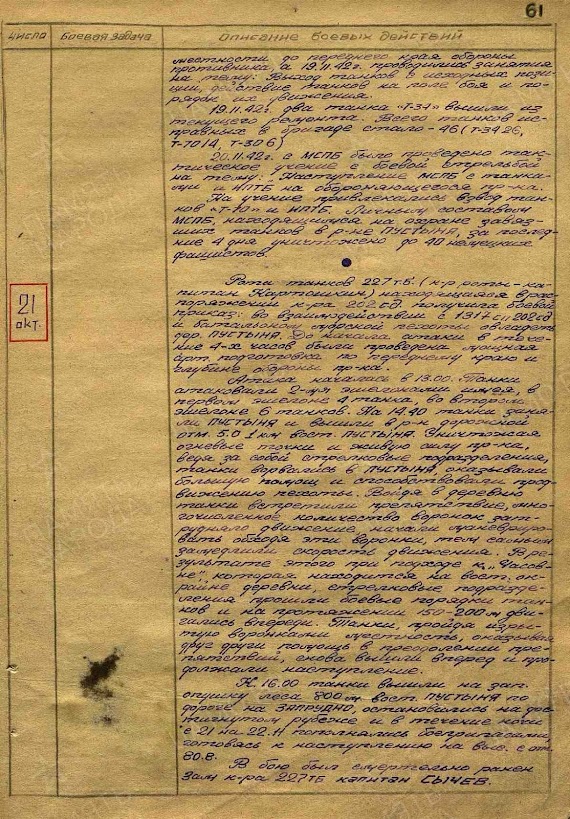 61
Числа Боевая задача Описание боевых действий
местности до переднего края обороны
противника, а 19.11.42г. проводились занятия
на тему: Выход танков с исходных пози-
ций, действие танков на поле боя и по-
рядок их движения.
19.11.42г. два танка "Т-34" вышли из
текущего ремонта. Всего танков ис-
правных в бригаде стало - 46 (Т-34 26,
Т-70 14, Т-30 6)
20.11.42г. с МСПБ было проведено так-
тическое учение с боевой стрельбой
на тему: "Наступление МСПБ с танка-
ми и ИПТБ на обороняющегося пр-ка.
На учение привлекались взвод тан-
ков "Т-70" и ИПТБ. Личным составом
МСПБ, находящимся на охране завяз-
ших танков в р-не ПУСТЫНЯ, за послед-
ние 4 дня уничтожено до 40 немецких
фашистов.
21
окт.
Рота танков 227тб (к-р роты - ка-
питан Карташкин) находящаяся в рас-
поряжении к-ра 202сд получила боевой
приказ: во взаимодействии с 1317 сп 202сд
и батальоном морской пехоты овладеть
дер. ПУСТЫНЯ. До начала атаки в тече-
ние 4-х часов была проведена мощная
арт. подготовка по переднему краю и
глубине обороны пр-ка.
Атака началась в 13.00. Танки
атаковали 2-мя эшелонами имея в
первом эшелоне 4 танка, во втором
эшелоне 6 танков. На 14.40 танки заня-
ли ПУСТЫНЯ и вышли в р-н дорожной
отм. 5.0 1 км вост. ПУСТЫНЯ. Уничтожая
огневые точки и живую силу пр-ка,
ведя за собой стрелковые подразделения,
танки ворвались в ПУСТЫНЯ, оказывали
большую помощь и способствовали прод-
вижению пехоты. Войдя в деревню
танки встретили препятствие, мно-
гочисленное количество воронок зат-
рудняло движение, начали маневриро-
вать обходя эти воронки, тем самым
замедлили скорость движения. В ре-
зультате этого при подходе к "Часов-
не", которая находится на вост. ок-
райне деревни, стрелковые подразде-
ления прошли боевые порядки тан-
ков и на протяжении 150-200м дви-
гались впереди. Танки, пройдя изры-
тую воронками местность, оказывая
друг другу помощь в преодолении пре-
пятствий, снова вышли вперед и про-
должали наступление.
К 16.00 танки вышли на зап.
опушку леса 800м вост. ПУСТЫНЯ по
дороге на ЗАПРУДНО, остановились на дос-
тигнутом рубеже и в течение ночи
с 21 на 22.11 пополнялись боеприпасами,
готовясь к наступлению на выс. с отм.
80.8.
В бою был смертельно ранен
зам. к-ра 227ТБ капитан СЫЧЕВ.